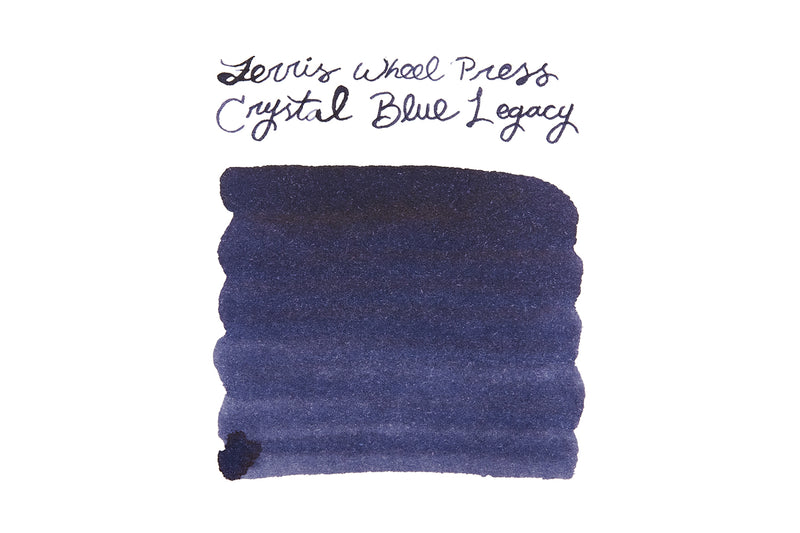 Ferris Wheel Press
Crystal Blue Legacy